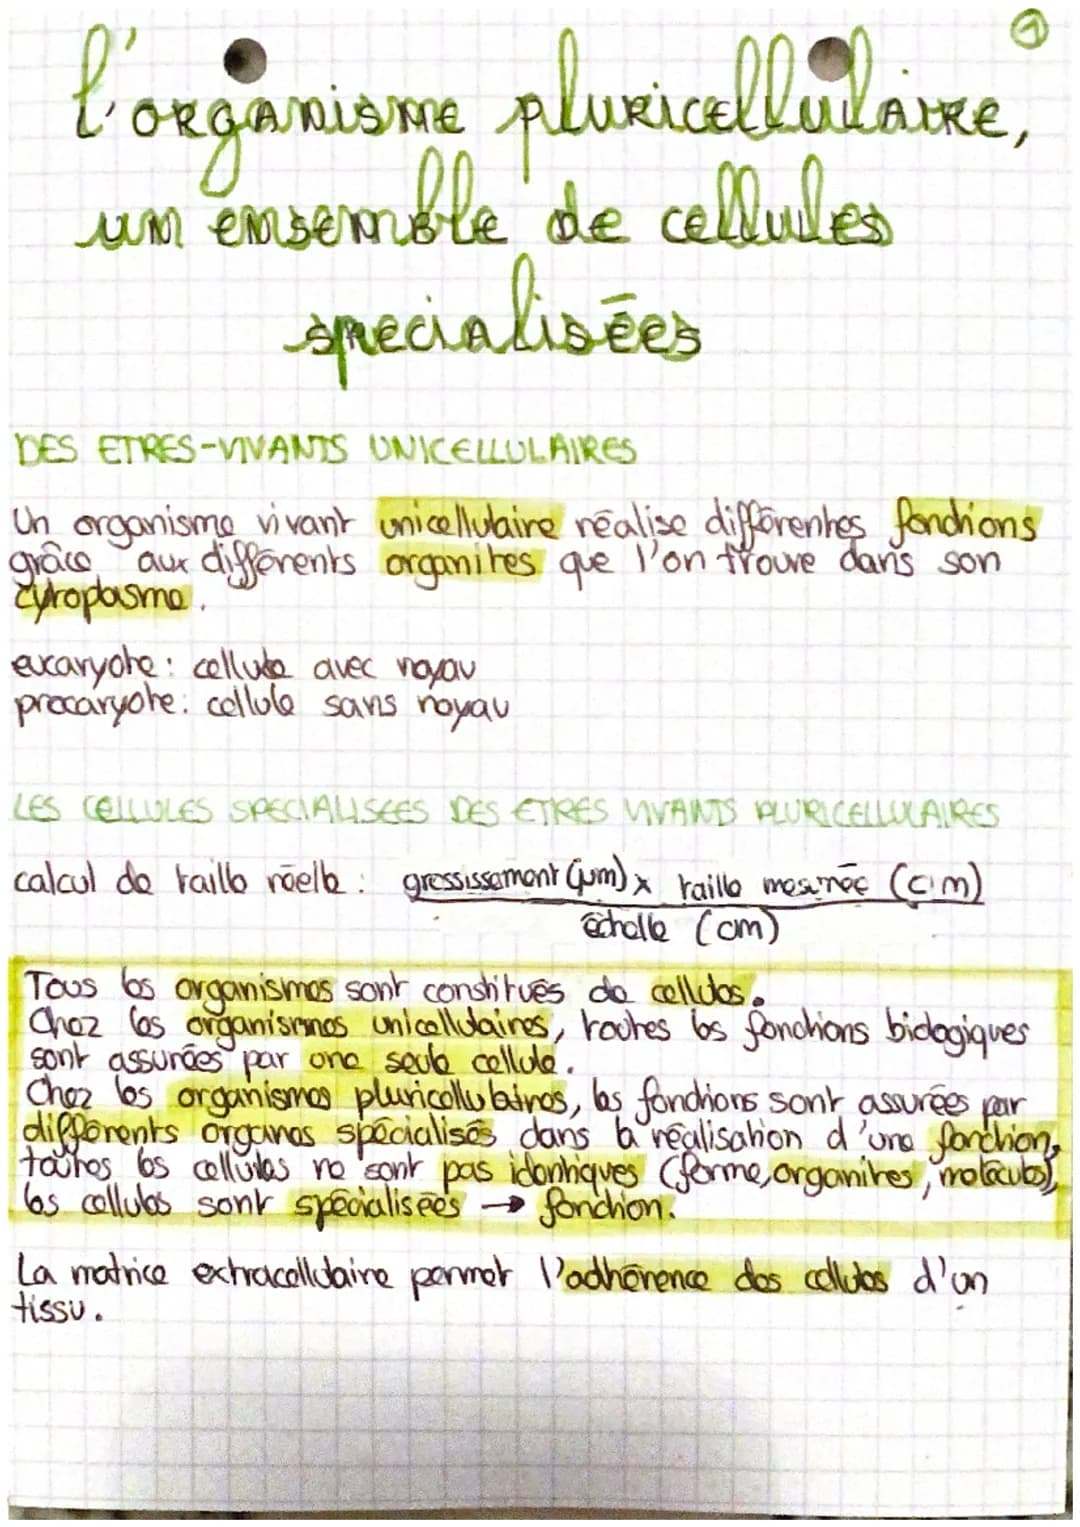 1
l'organisme pluricellulaire,
un ensemble de cellules
specialisées
DES ETRES-VIVANTS UNICELLULAIRES
Un organisme vivant unicellulaire réalise différentes fonctions
grâce aux différents organites que l'on trouve dans son
cytoplasme.
eucaryote: cellule avec noyau
procaryote: cellule sans noyau
LES CELLULES SPECIALISEES DES ETRES VIVANTS PLURICELLULAIRES
calcul de taille réelle: grossissement (µm) x taille mesurée (cm)
échelle (cm)
Tous les organismes sont constitués de cellules.
Chez les organismes unicellulaires, toutes les fonctions biologiques
sont assurées par une seule cellule.
Chez les organismes pluricellulaires, les fonctions sont assurées par
différents organes spécialisés dans la réalisation d'une fonction,
toutes les cellules ne sont pas identiques (forme, organites, molécules),
les cellules sont spécialisées → fonction.
La matrice extracellulaire permet l'adhérence des cellules d'un
tissu.